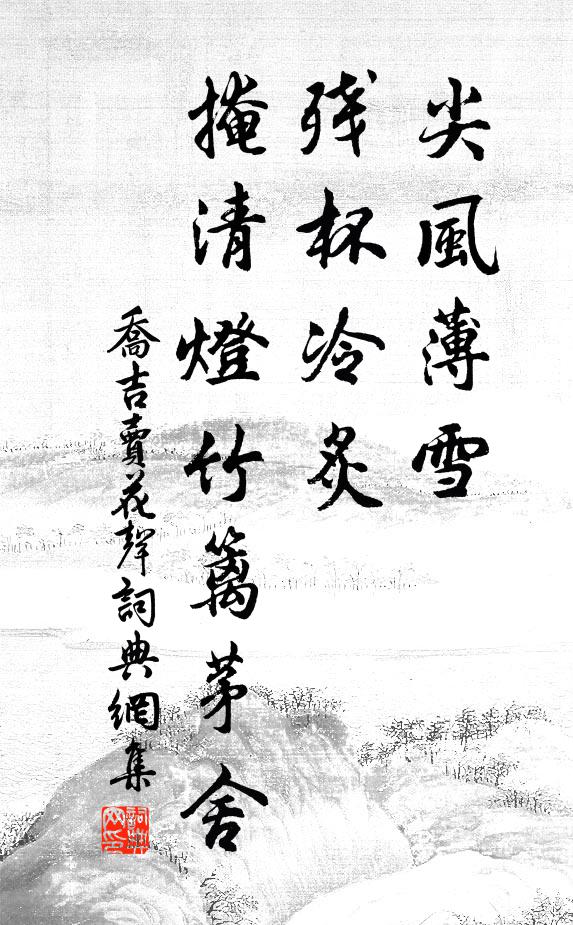 尖風薄雪
残杯冷炙
掩清燈竹籬茅舍
喬吉賣花聲詞典網集